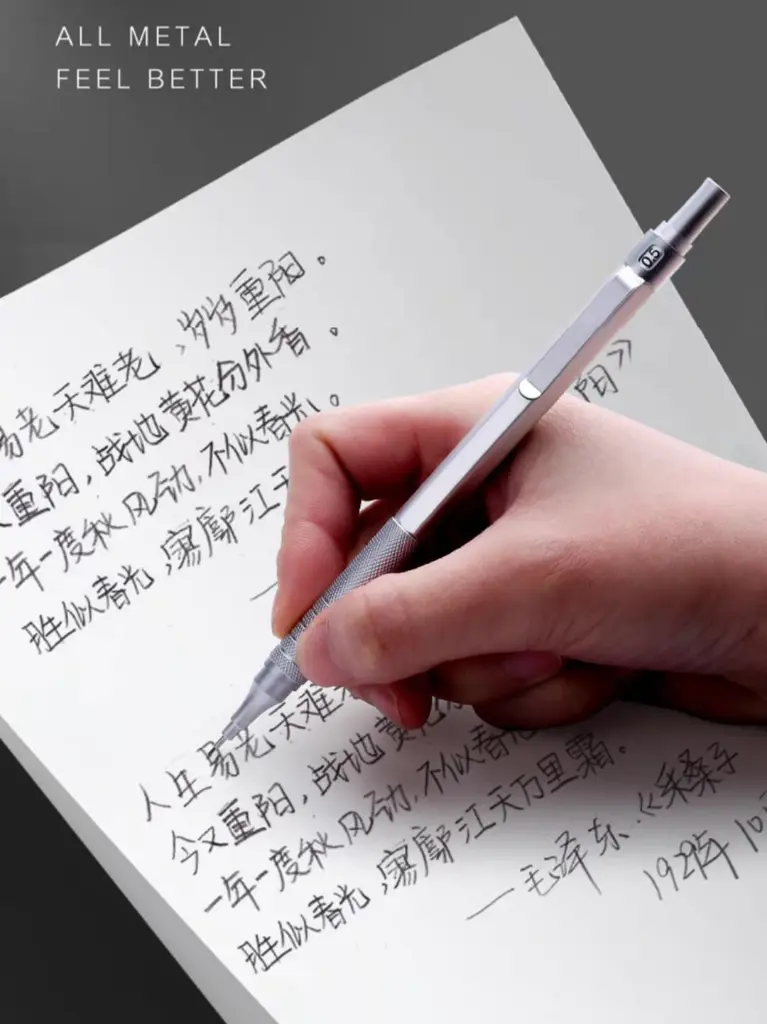 ALL METAL
FEEL BETTER
0.5
易老天难老,岁岁重阳。
重阳,战地黄花分外香。
一年一度秋风劲,不似春光。
胜似春光,寥廓江天
阳》
人生易老天难
今又重阳,战地黄花
一年一度秋风劲,不似春
胜似春光,寥廓江天万里霜。
—毛泽东《采桑子
1929年10